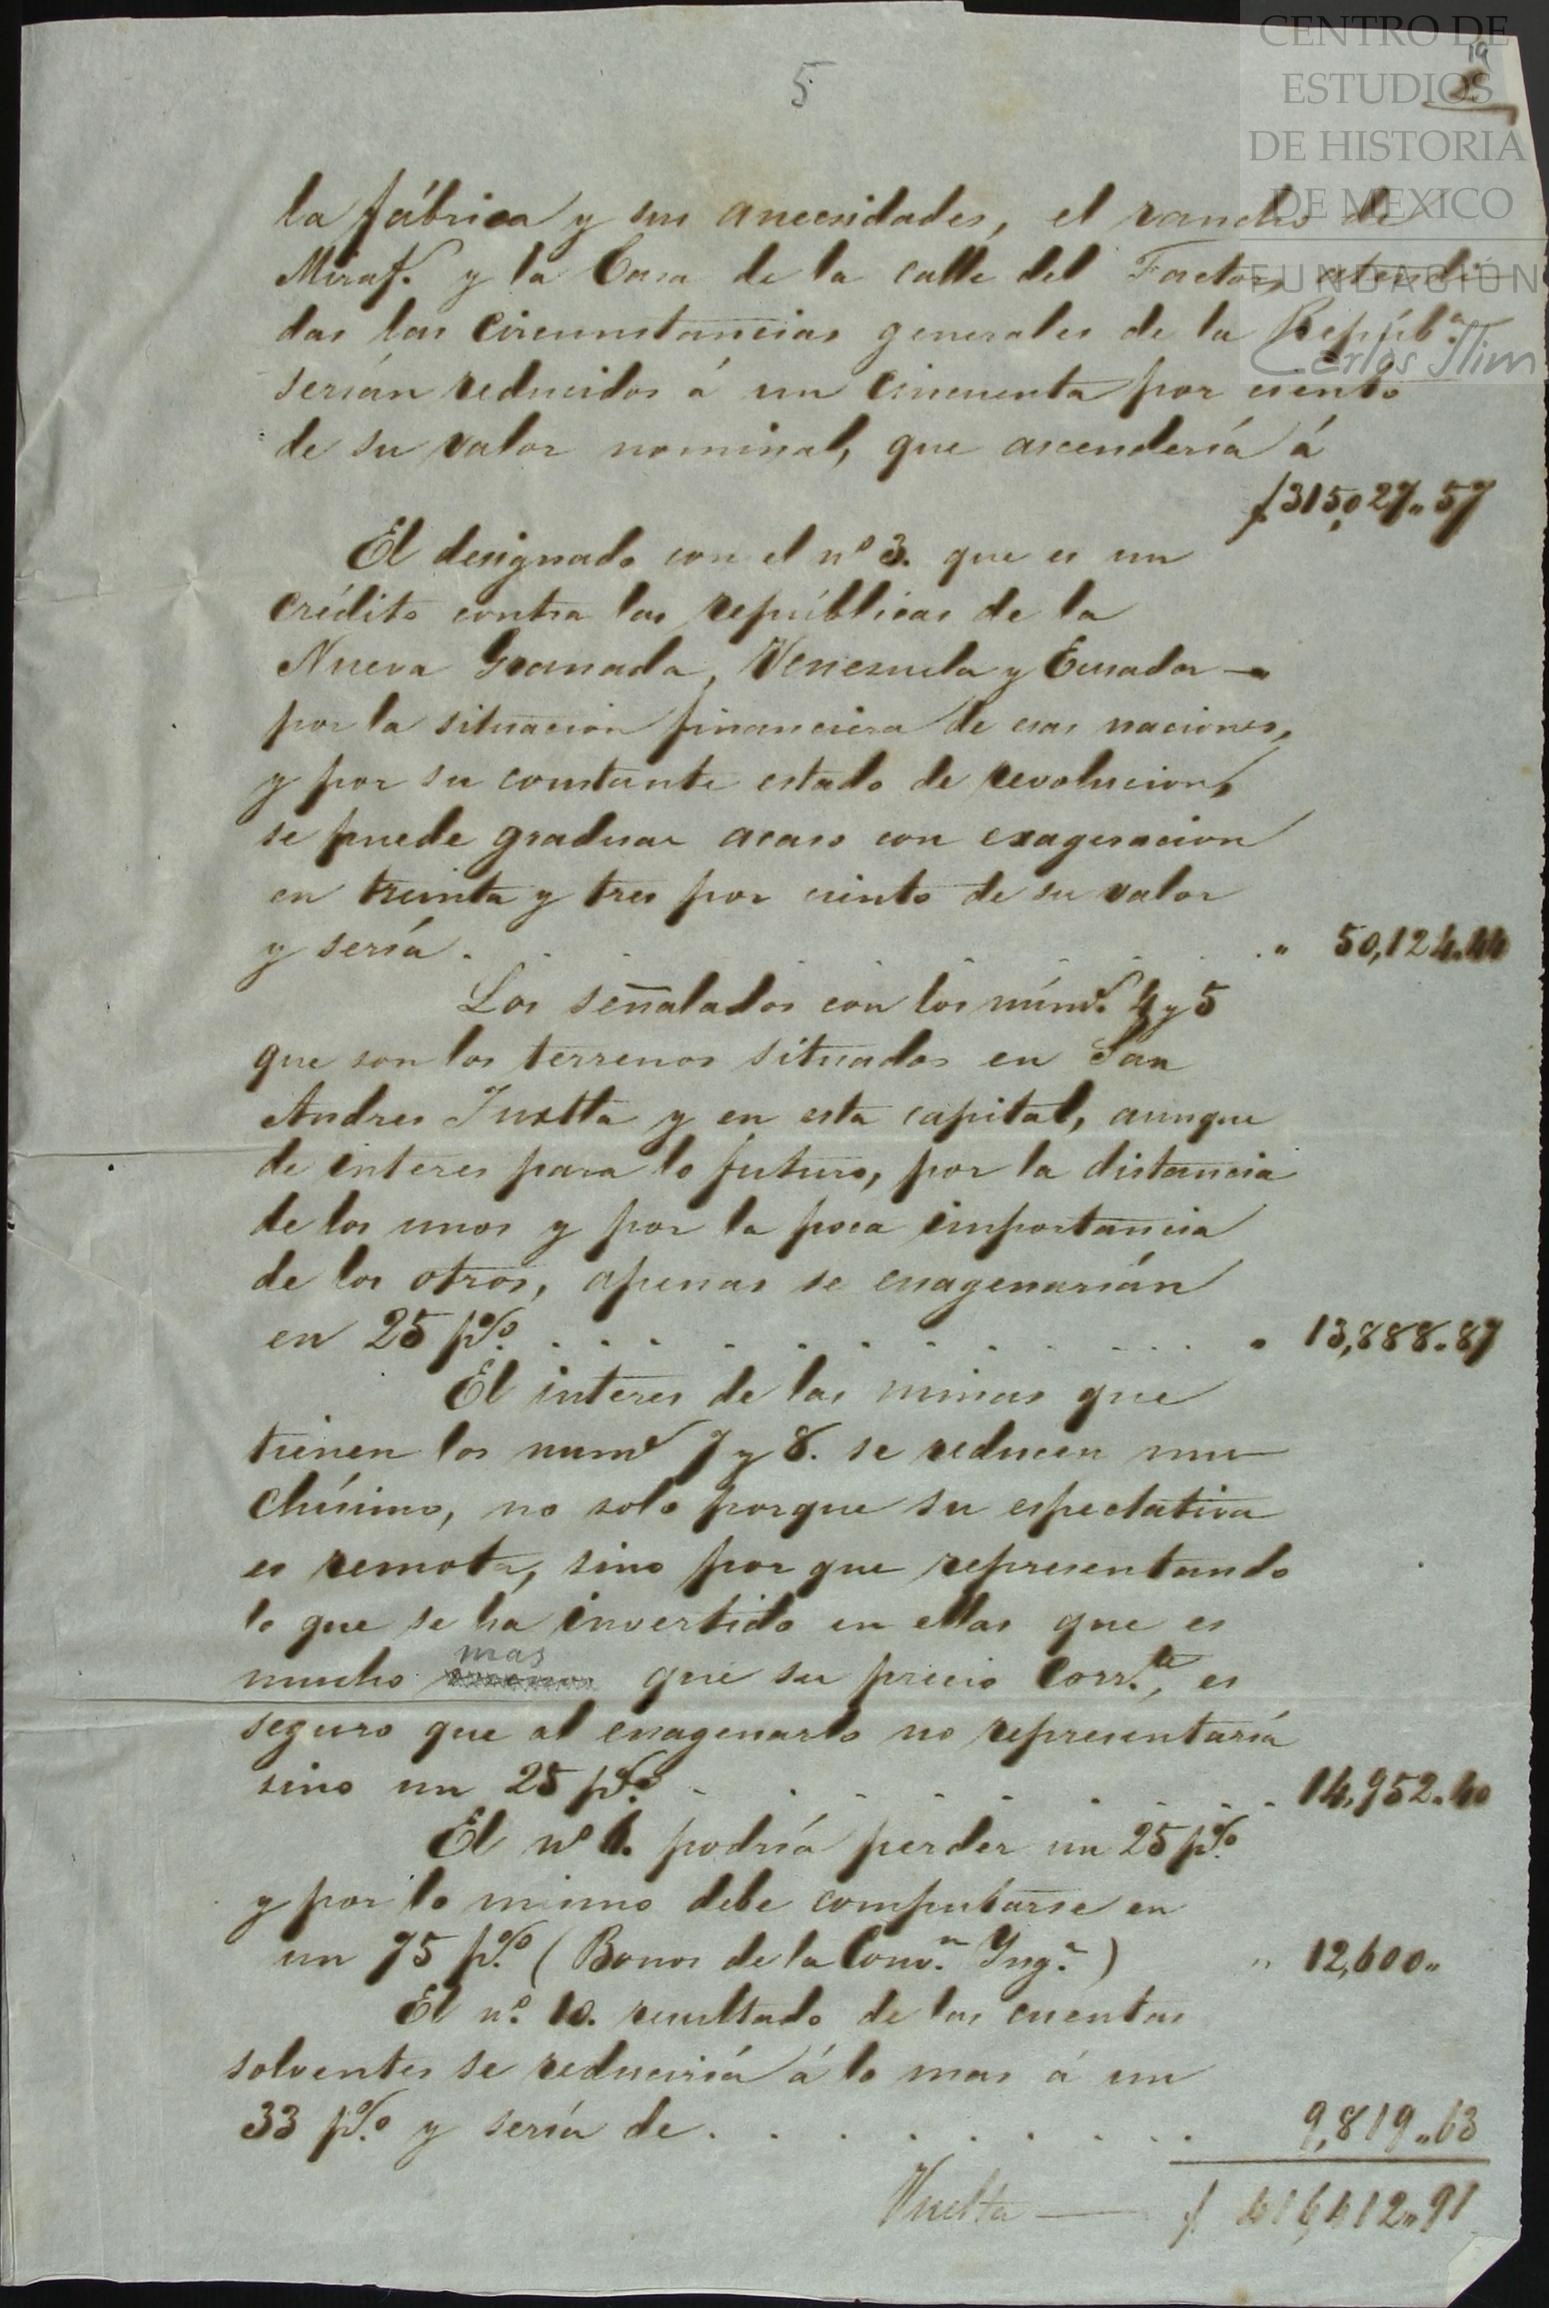 5
19
CENTRO DE
ESTUDIOS
DE HISTORIA
DE MEXICO
FUNDACIÓN
Carlos Slim
la fábrica y sus anecesidades, el rancho de
Miraf.s y la Casa de la calle del Factor, atendi-
das las circunstancias generales de la Repúb.a
serían reducidos á un cincuenta por ciento
de su valor nominal, que ascendería á
$ 315,027.. 57
El designado con el nº 3. que es un
crédito contra las repúblicas de la
Nueva Granada, Venezuela y Ecuador —
por la situacion financiera de esas naciones,
y por su constante estado de revolucion,
se puede graduar acaso con exageracion
en treinta y tres por ciento de su valor
y sería . . . . . . . . . . " 50,124.44
Los señalados con los núms. 4 y 5
que son los terrenos situados en San
Andres Tuxtla y en esta capital, aunque
de interes para lo futuro, por la distancia
de los unos y por la poca importancia
de los otros, apenas se enagenarián
en 25 p%. . . . . . . . . . . . " 13,888.87
El interes de las minas que
tienen los nums 7 y 8. se reducen mu-
chísimo, no solo porque su espectativa
es remota, sino por que representando
lo que se ha invertido en ellas que es
mas
mucho que su precio corr.te, es
seguro que al enagenarlo no representaría
sino un 25 p%. . . . . . . . . . 14,952.40
El nº 6. podría perder un 25 p%.
y por lo mismo debe computarse en
un 75 p%. (Bonos de la Conv.n Ing.a) " 12,600..
El nº. 10. resultado de las cuentas
solventes se reduciría á lo mas á un
33 p%. y sería de . . . . . . . . . 9,819..63
Vuelta — $ 416,412..91